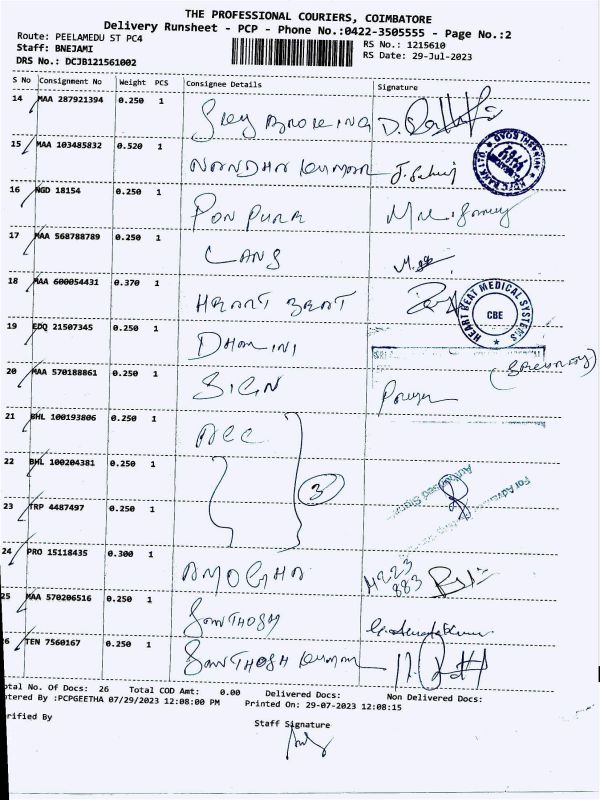 THE PROFESSIONAL COURIERS, COIMBATORE
Delivery Runsheet - PCP - Phone No.:0422-3505555 - Page No.:2
Route: PEELAMEDU ST PC4
RS No.: 1215610
Staff: BNEJAMI
RS Date: 29-Jul-2023
DRS No.: DCJB121561002
S No Consignment No Weight PCS Consignee Details Signature
14 MAA 287921394 0.250 1
15 MAA 103485832 0.520 1 NANDHA KUMAR
16 NGD 18154 0.250 1 PON PURE
17 MAA 568788789 0.250 1 LANS
18 MAA 600054431 0.370 1 HEART BEAT
HEART BEAT MEDICAL SYSTEMS
CBE
19 EDQ 21507345 0.250 1 DHAMINI
(SECURITY)
20 MAA 570188861 0.250 1 SIGN
21 BHL 100193806 0.250 1 ACC
22 BHL 100204381 0.250 1
3
23 TRP 4487497 0.250 1
24 PRO 15118435 0.300 1 AMOGHA
25 MAA 570206516 0.250 1 SANTHOSH
26 TEN 7560167 0.250 1 SANTHOSH KUMAR
Total No. Of Docs: 26 Total COD Amt: 0.00 Delivered Docs: Non Delivered Docs:
ntered By :PCPGEETHA 07/29/2023 12:08:00 PM Printed On: 29-07-2023 12:08:15
erified By
Staff Signature